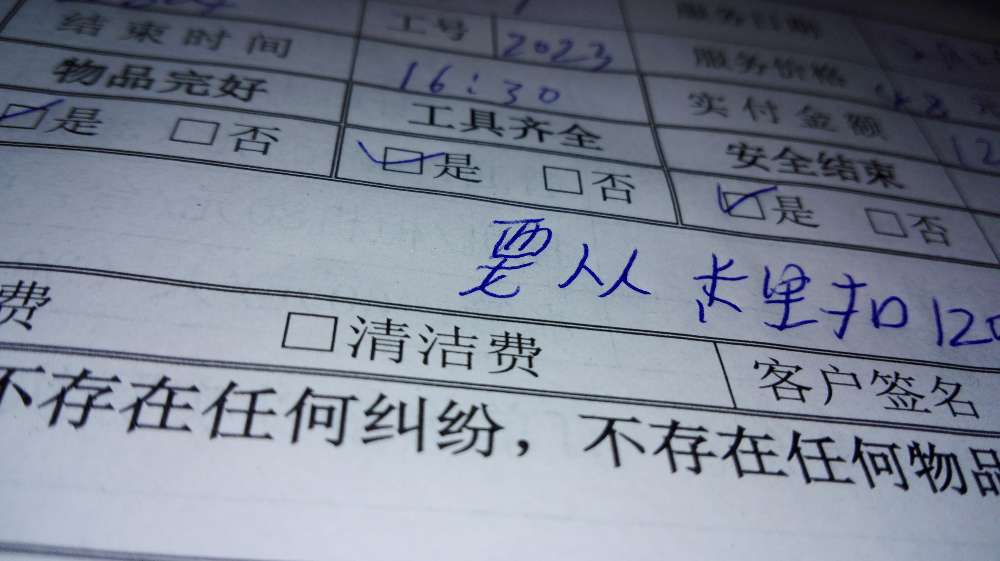 工号 2023 服务日期
结束时间 16:30 服务价格
物品完好 工具齐全 实付金额 12
是 □否 是 □否 安全结束 是 □否
要从卡里扣120
费 □清洁费 客户签名
不存在任何纠纷，不存在任何物品